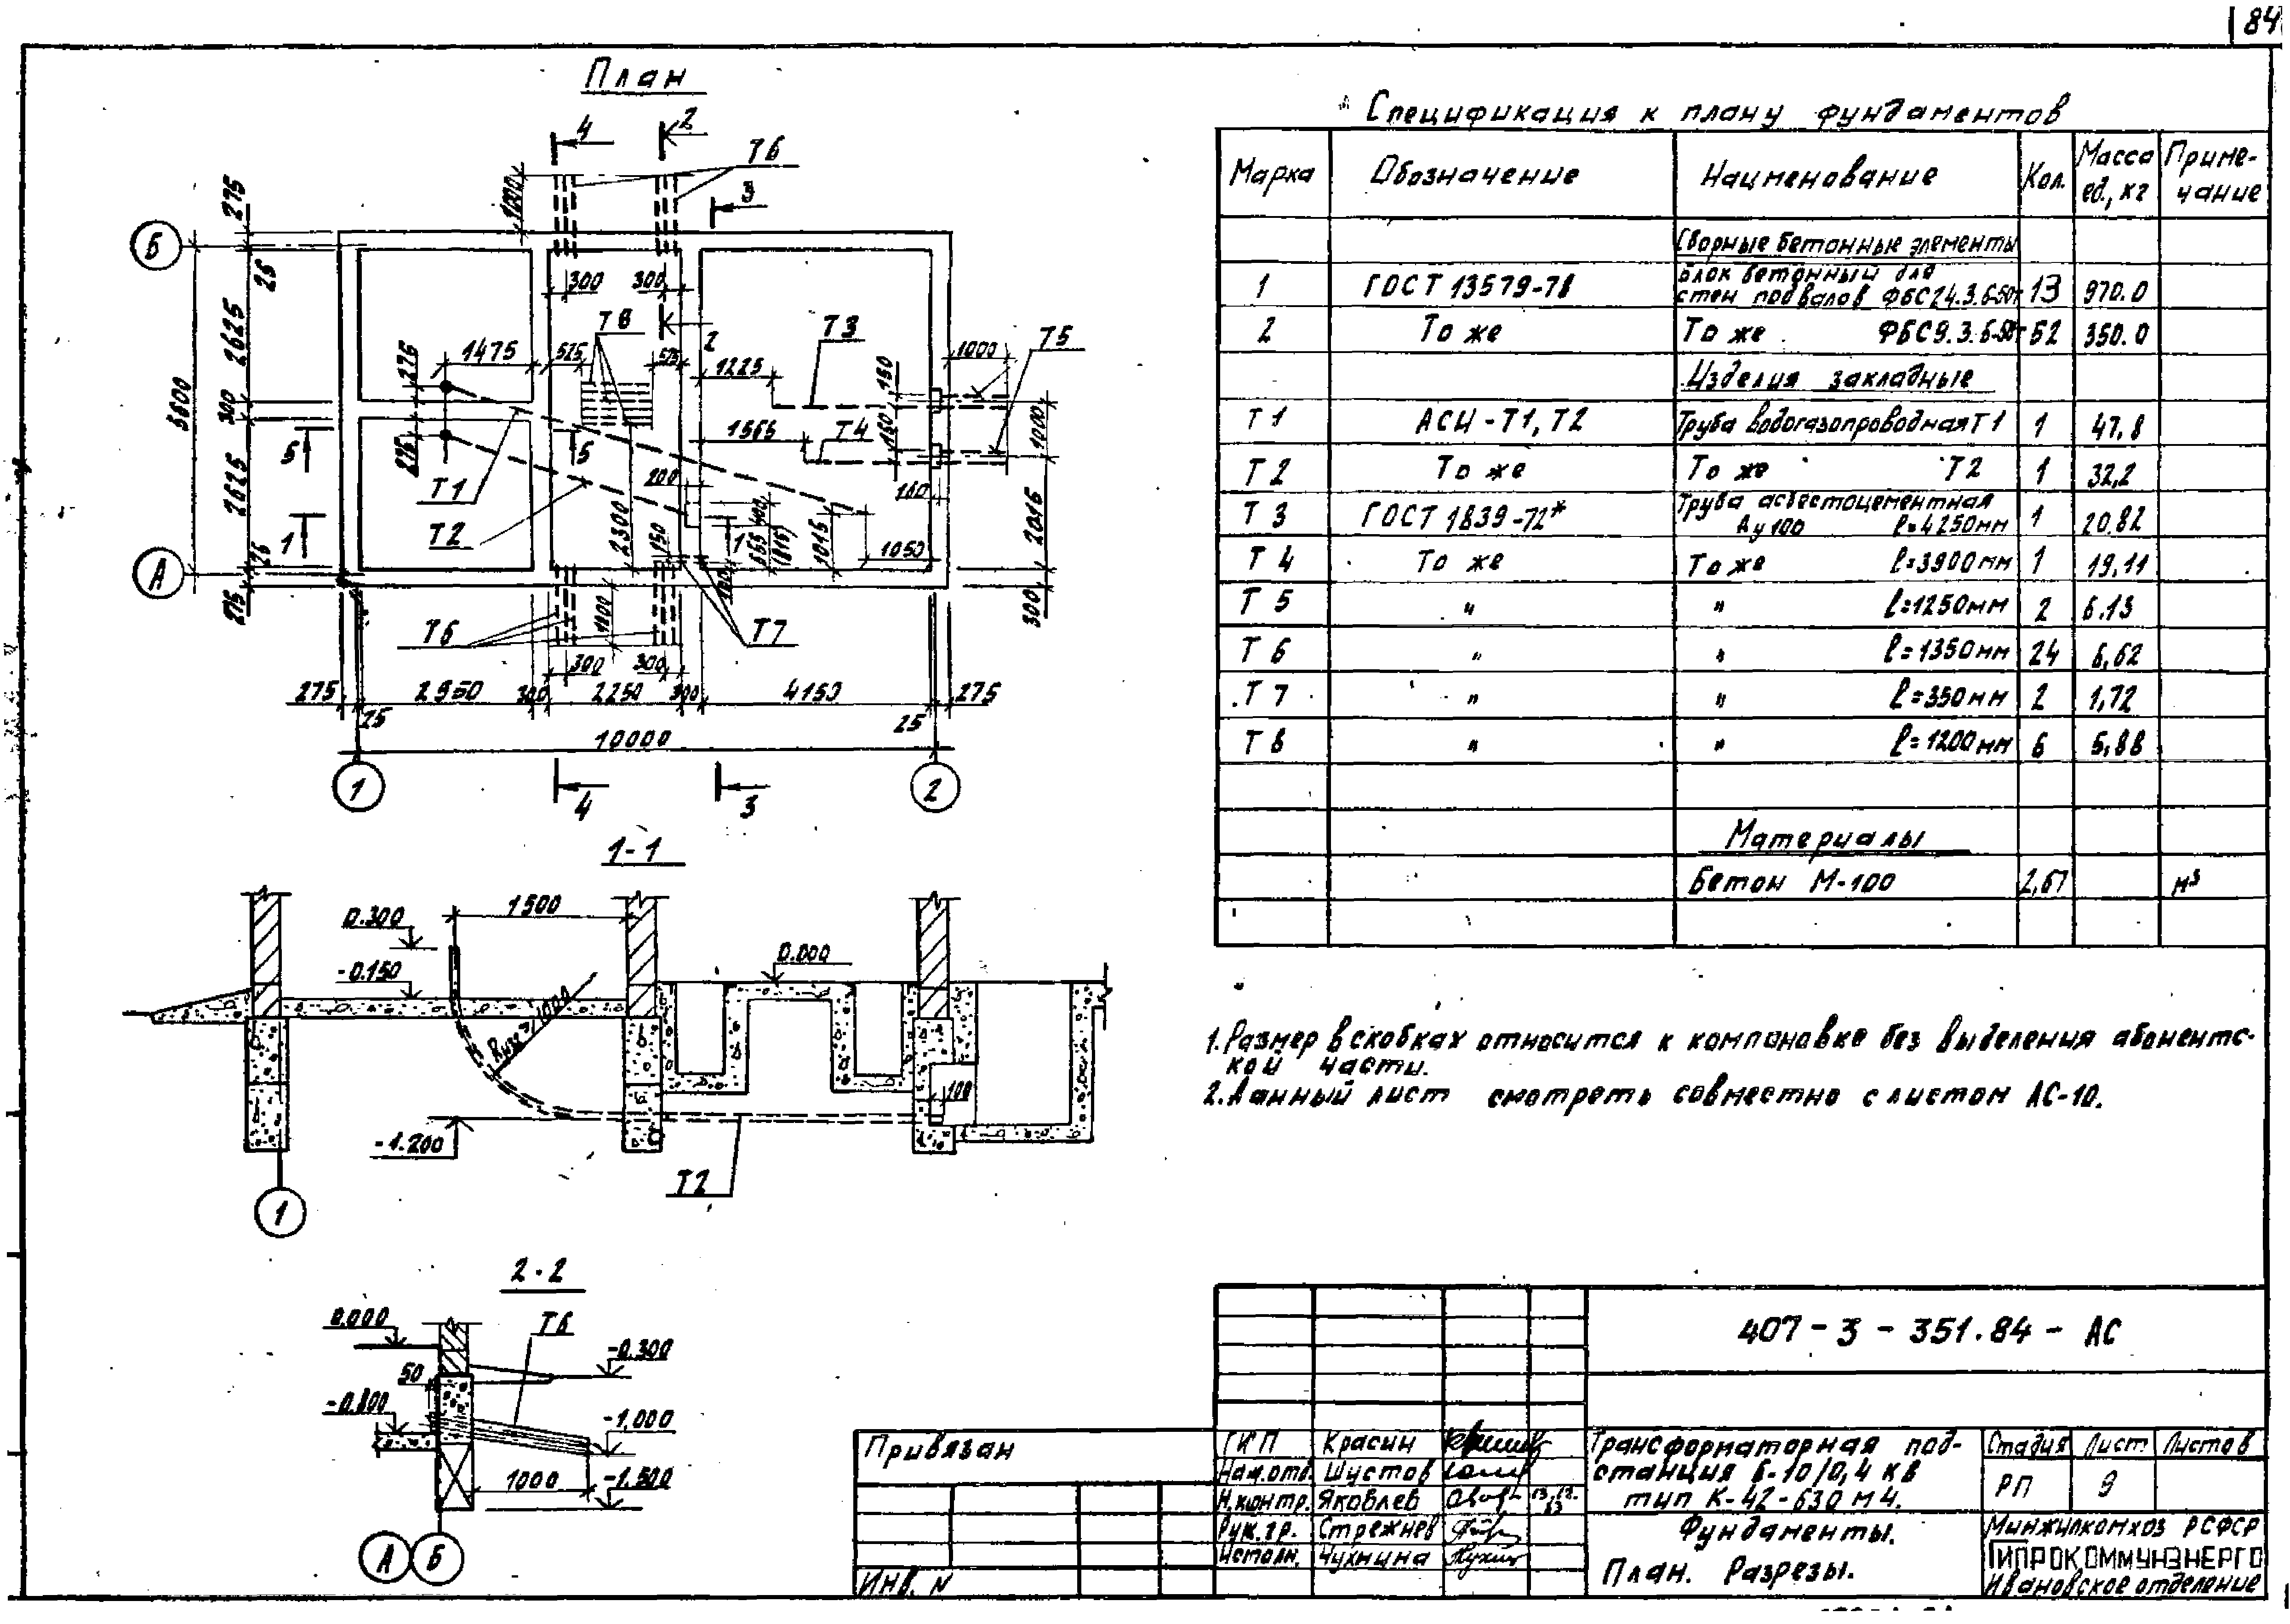 84
План
4
2
Т6
3
1000
Б
275
25
2625
5600
300
2625
25
275
А
300
300
Т8
2
1475
525
525
275
275
1225
Т3
1000
Т5
150
1565
Т4
150
1000
5
5
Т1
Т2
200
160
2300
150
1
1
400
(1815)
1015
1050
2015
300
100
Т6
1200
Т7
300
300
275
25
2950
300
2250
300
4150
25
275
10000
1
2
4
3
1-1
0.300
1500
-0.150
0.000
Rизг 1000
100
-1.200
Т2
1
2-2
0.000
Т6
-0.300
50
-0.800
-1.000
1000
-1.500
А
Б
Спецификация к плану фундаментов
Марка Обозначение Наименование Кол. Масса ед., кг Примечание
Сборные бетонные элементы
1 ГОСТ 13579-78 Блок бетонный для
стен подвалов ФБС24.3.6-50т 13 970.0
2 То же То же ФБС9.3.6-50т 52 350.0
Изделия закладные
Т1 АСИ-Т1, Т2 Труба водогазопроводная Т1 1 47.8
Т2 То же То же Т2 1 32,2
Т3 ГОСТ 1839-72* Труба асбестоцементная
Ду100 ℓ=4250мм 1 20.82
Т4 То же То же ℓ=3900мм 1 19,11
Т5 " " ℓ=1250мм 2 6.13
Т6 " " ℓ=1350мм 24 6,62
Т7 " " ℓ=350мм 2 1,72
Т8 " " ℓ=1200мм 6 5,88
Материалы
Бетон М-100 м³
1. Размер в скобках относится к компановке без выделения абонентс-
кой части.
2. Данный лист смотреть совместно с листом АС-10.
407-3-351.84-АС
Привязан
Инв. N
ГИП Красин
Нач.отд. Шустов
Н.контр. Яковлев
Рук.гр. Стрежнев
Исполн. Чухнина
Трансформаторная под-
станция 6-10/0,4 кв
тип К-42-630 М4.
Стадия Лист Листов
РП 9
Фундаменты.
План. Разрезы.
Минжилкомхоз РСФСР
ГИПРОКОММУНЭНЕРГО
Ивановское отделение